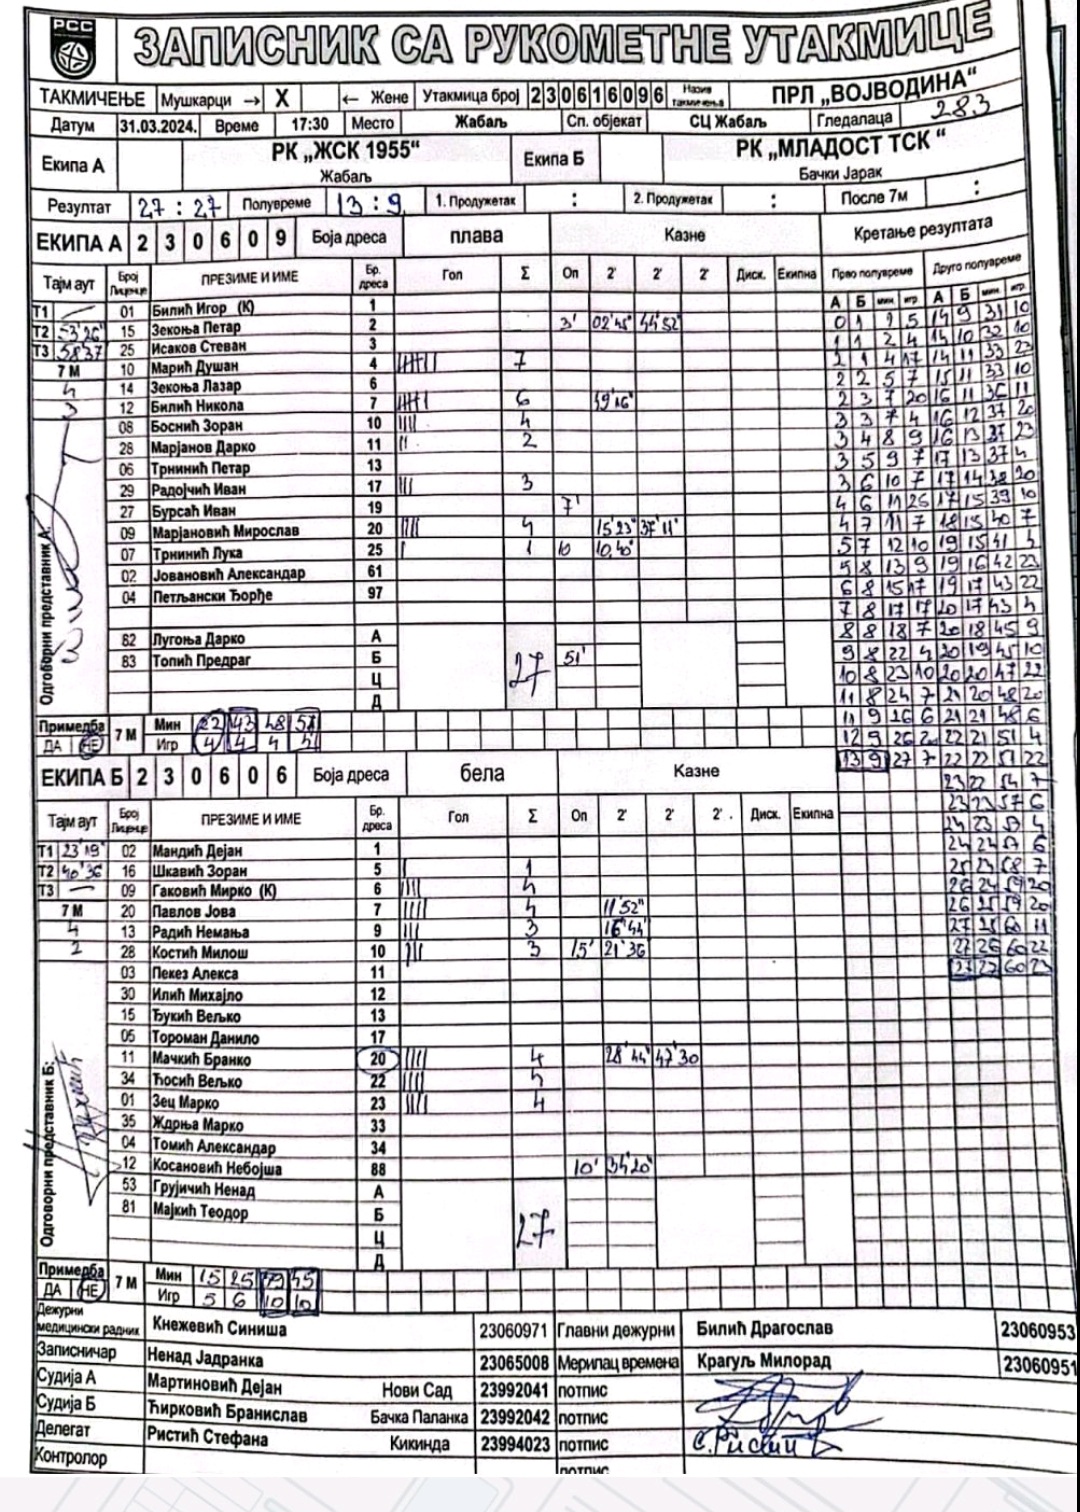 РСС
ЗАПИСНИК СА РУКОМЕТНЕ УТАКМИЦЕ
ТАКМИЧЕЊЕ Мушкарци → X ← Жене Утакмица број 230616096 Назив такмичења ПРЛ „ВОЈВОДИНА“
Датум 31.03.2024. Време 17:30 Место Жабаљ Сп. објекат СЦ Жабаљ Гледалаца 283
Екипа А РК „ЖСК 1955“ Жабаљ Екипа Б РК „МЛАДОСТ ТСК “ Бачки Јарак
Резултат 27 : 27 Полувреме 13 : 9 1. Продужетак : 2. Продужетак : После 7м :
ЕКИПА А 230609 Боја дреса плава Казне Кретање резултата
Тајм аут Број Лиценце ПРЕЗИМЕ И ИМЕ Бр. дреса Гол Σ Оп 2' 2' 2' Диск. Екипна Прво полувреме Друго полувреме
А Б мин. игр. А Б мин. игр.
Т1 — 01 Билић Игор (К) 1
Т2 53'26" 15 Зекоња Петар 2 3' 02'45" 44'52"
Т3 58'37 25 Исаков Стеван 3
7 М 10 Марић Душан 4 7
4 14 Зекоња Лазар 6
3 12 Билић Никола 7 6 49'16"
08 Боснић Зоран 10 4
28 Марјанов Дарко 11 2
06 Трнинић Петар 13
29 Радојчић Иван 17 3
27 Бурсаћ Иван 19 7'
09 Марјановић Мирослав 20 4 15'23" 37'11"
07 Трнинић Лука 25 1 10 10,40"
02 Јовановић Александар 61
04 Петљански Ђорђе 97
82 Лугоња Дарко А
83 Топић Предраг Б 27 51'
Ц
Д
Одговорни представник А:
0 1 1 5 14 9 31 10
1 1 2 4 14 10 32 10
2 1 4 17 14 11 33 23
2 2 5 7 15 11 33 10
2 3 7 20 16 11 36 11
3 3 7 4 16 12 37 20
3 4 8 9 16 13 37 23
3 5 9 7 17 13 37 4
3 6 10 7 17 14 38 20
4 6 11 25 17 15 39 10
4 7 11 7 18 15 40 7
5 7 12 10 19 15 41 4
5 8 13 9 19 16 42 23
6 8 15 17 19 17 43 22
7 8 17 17 20 17 43 4
8 8 18 7 20 18 45 9
9 8 22 4 20 19 45 10
10 8 23 10 20 20 47 22
11 8 24 7 21 20 48 20
11 9 26 6 21 21 48 6
12 9 26 20 22 21 51 4
13 9 27 7 22 22 51 22
23 22 54 7
23 23 57 6
24 23 57 4
24 24 57 6
25 24 58 7
26 24 59 20
26 25 59 20
27 25 60 11
27 26 60 22
27 27 60 23
Примедба ДА НЕ 7 М Мин 22 43 48 51
Игр 4 4 4 4
ЕКИПА Б 230606 Боја дреса бела Казне
Тајм аут Број Лиценце ПРЕЗИМЕ И ИМЕ Бр. дреса Гол Σ Оп 2' 2' 2' . Диск. Екипна
Т1 23'19" 02 Мандић Дејан 1
Т2 40'36 16 Шкавић Зоран 5 1
Т3 — 09 Гаковић Мирко (К) 6 4
7 М 20 Павлов Јова 7 4 11'52"
4 13 Радић Немања 9 3 16'44"
2 28 Костић Милош 10 3 15' 21'36
03 Пекез Алекса 11
30 Илић Михајло 12
15 Ђукић Вељко 13
05 Тороман Данило 17
11 Мачкић Бранко 20 4 28'44" 47'30
34 Ћосић Вељко 22 4
01 Зец Марко 23 4
35 Ждрња Марко 33
04 Томић Александар 34
12 Косановић Небојша 88 10' 34'20"
53 Грујичић Ненад А
81 Мајкић Теодор Б 27
Ц
Д
Одговорни представник Б:
Примедба ДА НЕ 7 М Мин 15 25 39 45
Игр 5 6 10 10
Дежурни медицински радник Кнежевић Синиша 23060971 Главни дежурни Билић Драгослав 23060953
Записничар Ненад Јадранка 23065008 Мерилац времена Крагуљ Милорад 23060951
Судија А Мартиновић Дејан Нови Сад 23992041 потпис
Судија Б Ћирковић Бранислав Бачка Паланка 23992042 потпис
Делегат Ристић Стефана Кикинда 23994023 потпис С.Ристић
Контролор потпис